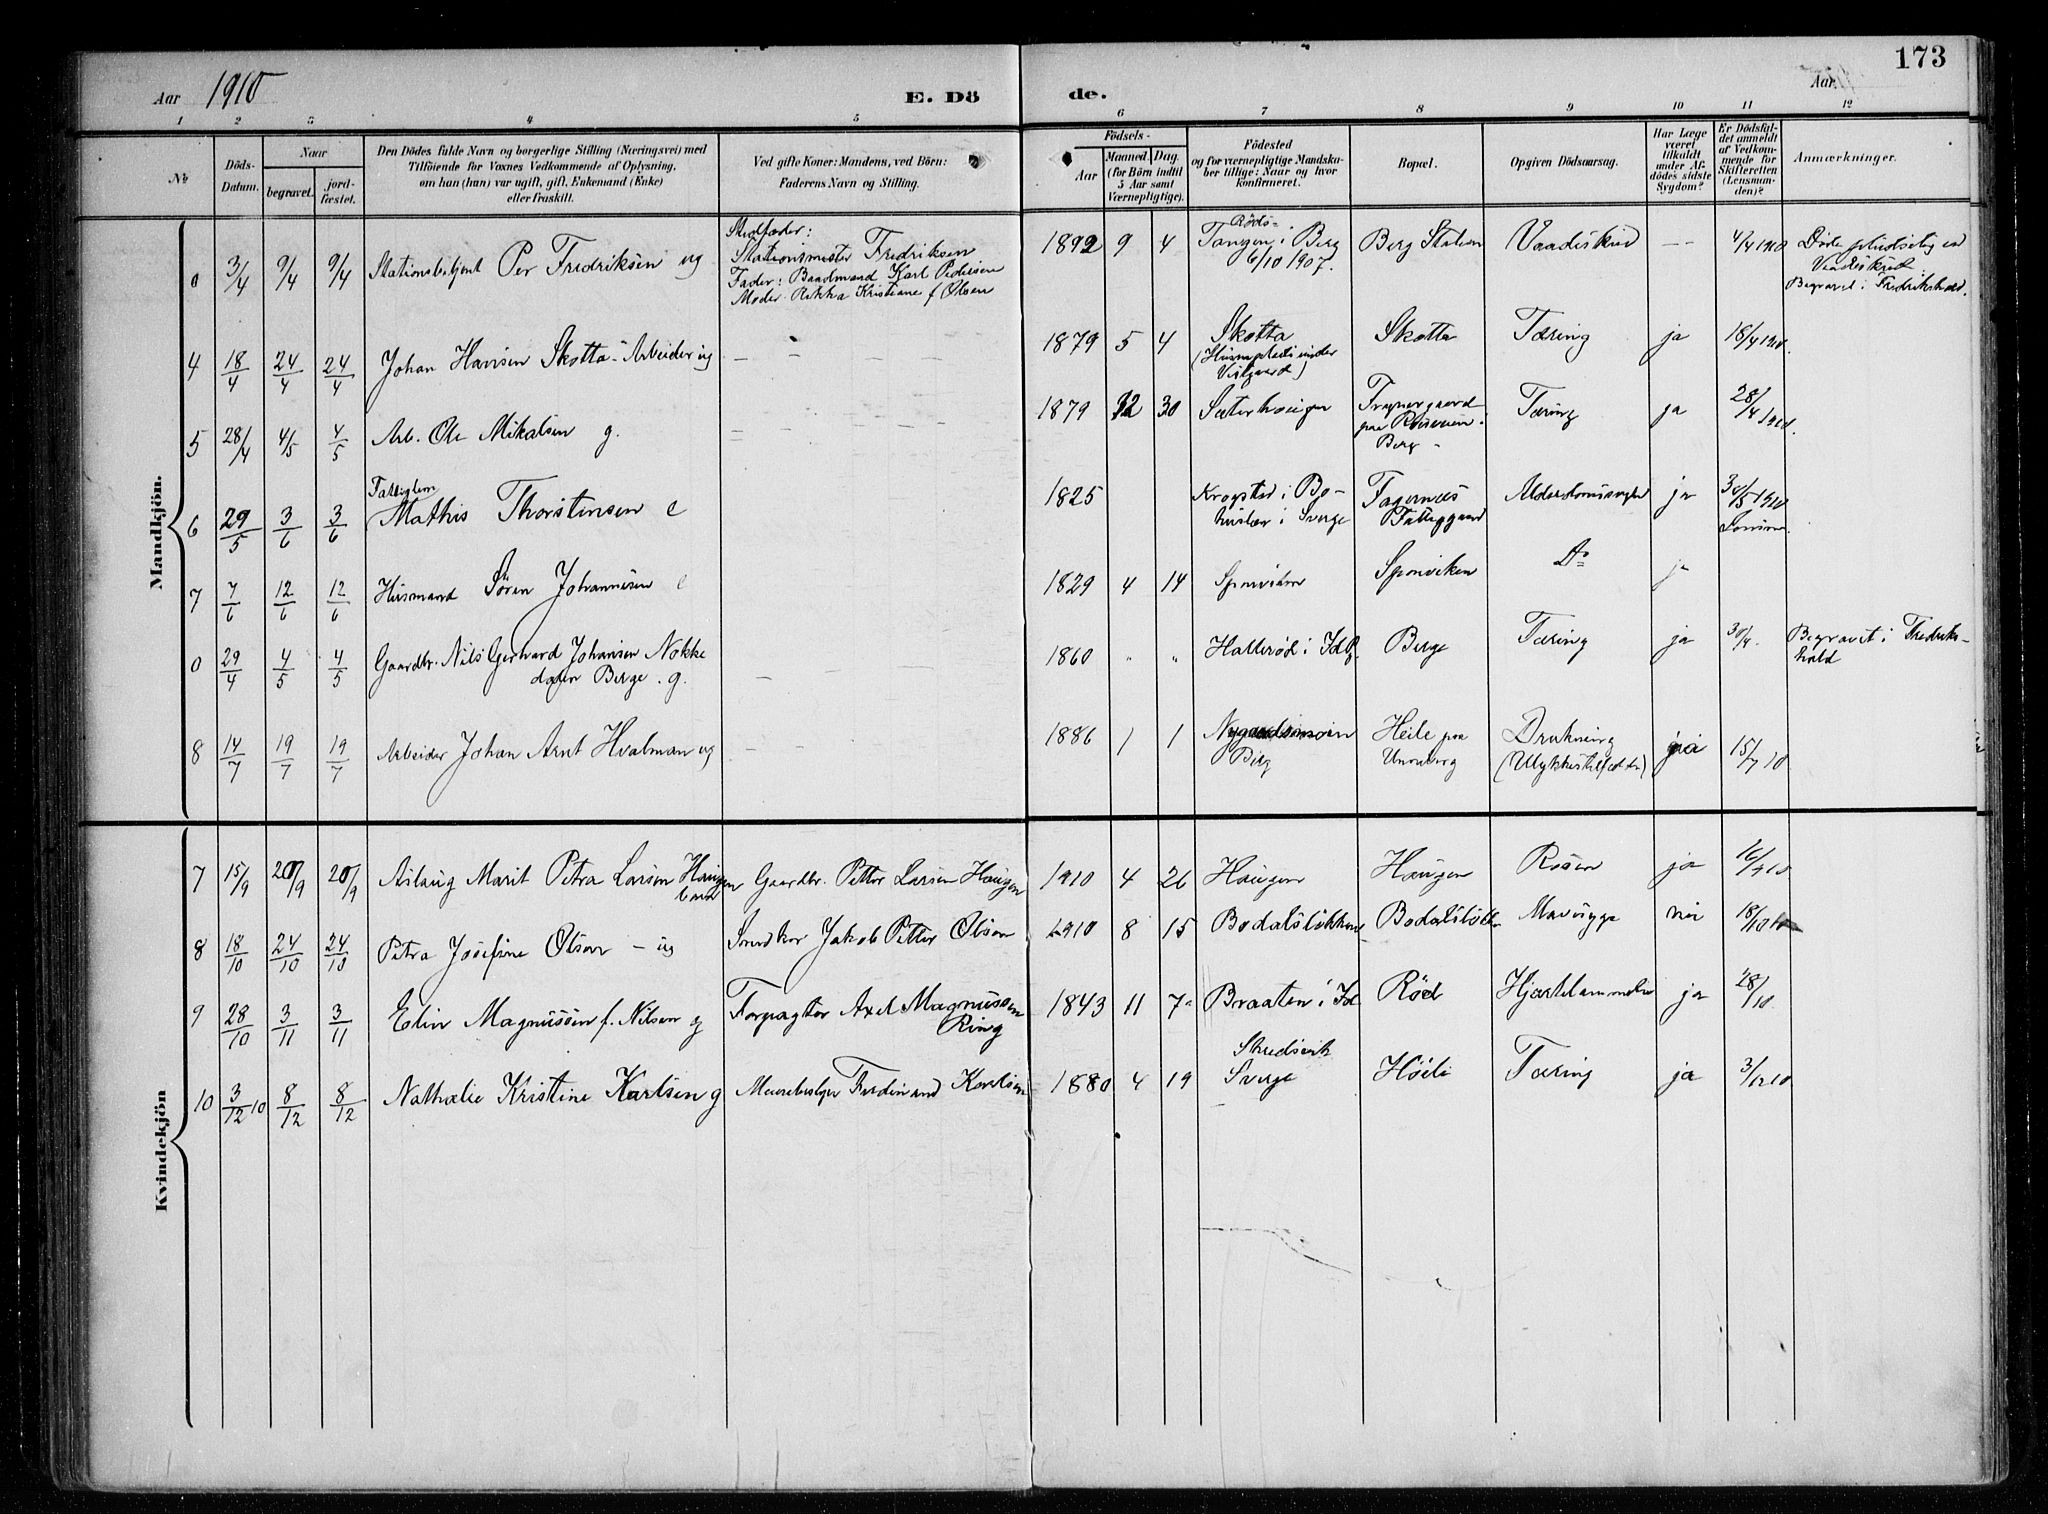 173
Aar 1910 E. Dö de. Aar
1 2 3 4 5 6 7 8 9 10 11 12
No
Döds-Datum.
Naar
begravet.
jordfæstet.
Den Dödes fulde Navn og borgerlige Stilling (Næringsvei) med
Tilföiende för Voxnes Vedkommende af Oplysning,
om han (hun) var ugift, gift, Enkemand (Enke)
eller fraskilt.
Ved gifte Koner: Mandens, ved Börn:
Faderens Navn og Stilling.
Födsels-
Aar
Maaned. Dag.
(for Börn indtil
5 Aar samt
Værnepligtige).
Födested
og for værnepligtige Mandskaber
tillige: Naar og hvor
konfirmeret.
Bopæl.
Opgiven Dödsaarsag.
Har Læge
været
tilkaldt
under Afdödes
sidste
Sygdom?
Er Dödsfaldet
anmeldt
af Vedkommende
för
Skifteretten
(Lensmanden)?
Anmærkninger.
Mandkjön.
0 3/4 9/4 9/4 Stationsbetjent Per Fredriksen ug
Stedfader:
Stationsmester Fredriksen
Fader: Baadmand Karl Pedersen
Moder Rikka Kristiane f Olsen
1892 9 4 Röds-
Tangen i Berg
6/10 1907.
Berg Station Vaadeskud — 4/4 1910 Döde pludselig ved
Vaadeskud
Begravet i Fredrikshald.
4 18/4 24/4 24/4 Johan Hansen Skotta - Arbeider ug — — — —
1879 5 4 Skotta
(Husmplads under
Vestgaard)
Skotta Tæring ja 18/4 1910.
5 28/4 4/5 4/5 Arb. Ole Mikalsen g.
1879 12 30 Sæterhaugen
paa
Berg
Tæring ja 28/4 1910.
6 29/5 3/6 3/6 Fattiglem
Mathis Thorstensen e
1825 Krogstad i Bohuslen
i Sverge
Fagernæs
Fattiggaard
Alderdomssvaghed ja 30/5 1910
7 7/6 12/6 12/6 Husmand Sören Johannesen e
1829 4 14 Sponviken Sponviken Do ja
0 29/4 4/5 4/5 Gaardbr. Nils Gerhard Johansen Nokke
dalen Berge . g. —
1860 " " Hallerød i Idd Berge Tæring ja 30/4. Begravet i Fredrikshald
8 14/7 19/7 19/7 Arbeider Johan Arnt Hvalman ug — — —
1886 1 1 Nygaardsmoen
Berg
Heile paa
Unneberg
Drukning
(Ulykkestilfælde)
ja 15/7 10
Kvindekjön
7 15/9 20/9 20/9 Aslaug Marit Petra Larsen Haugen
barn
Gaardbr. Petter Larsen Haugen 1910 4 26 Haugen Haugen Rosen ja 16/9 10
8 18/10 24/10 24/10 Petra Josefine Olsen — ug Snedker Jakob Petter Olsen 1910 8 15 Bodalsløkken Bodalsløkken Mavesyge nei 18/10 10
9 28/10 3/11 3/11 Elin Magnussen f. Nilsen g Forpagter Axel Magnussen
Ring
1843 11 7 Braaten i Id Röd Hjertelammelse ja 28/10.
10 3/12 10 8/12 8/12 Nathalie Kristine Karlsen g Murerbeslyer Ferdinand Karlsen 1880 4 19 Skredsvik
Sverge
Höili Tæring ja 3/12 10